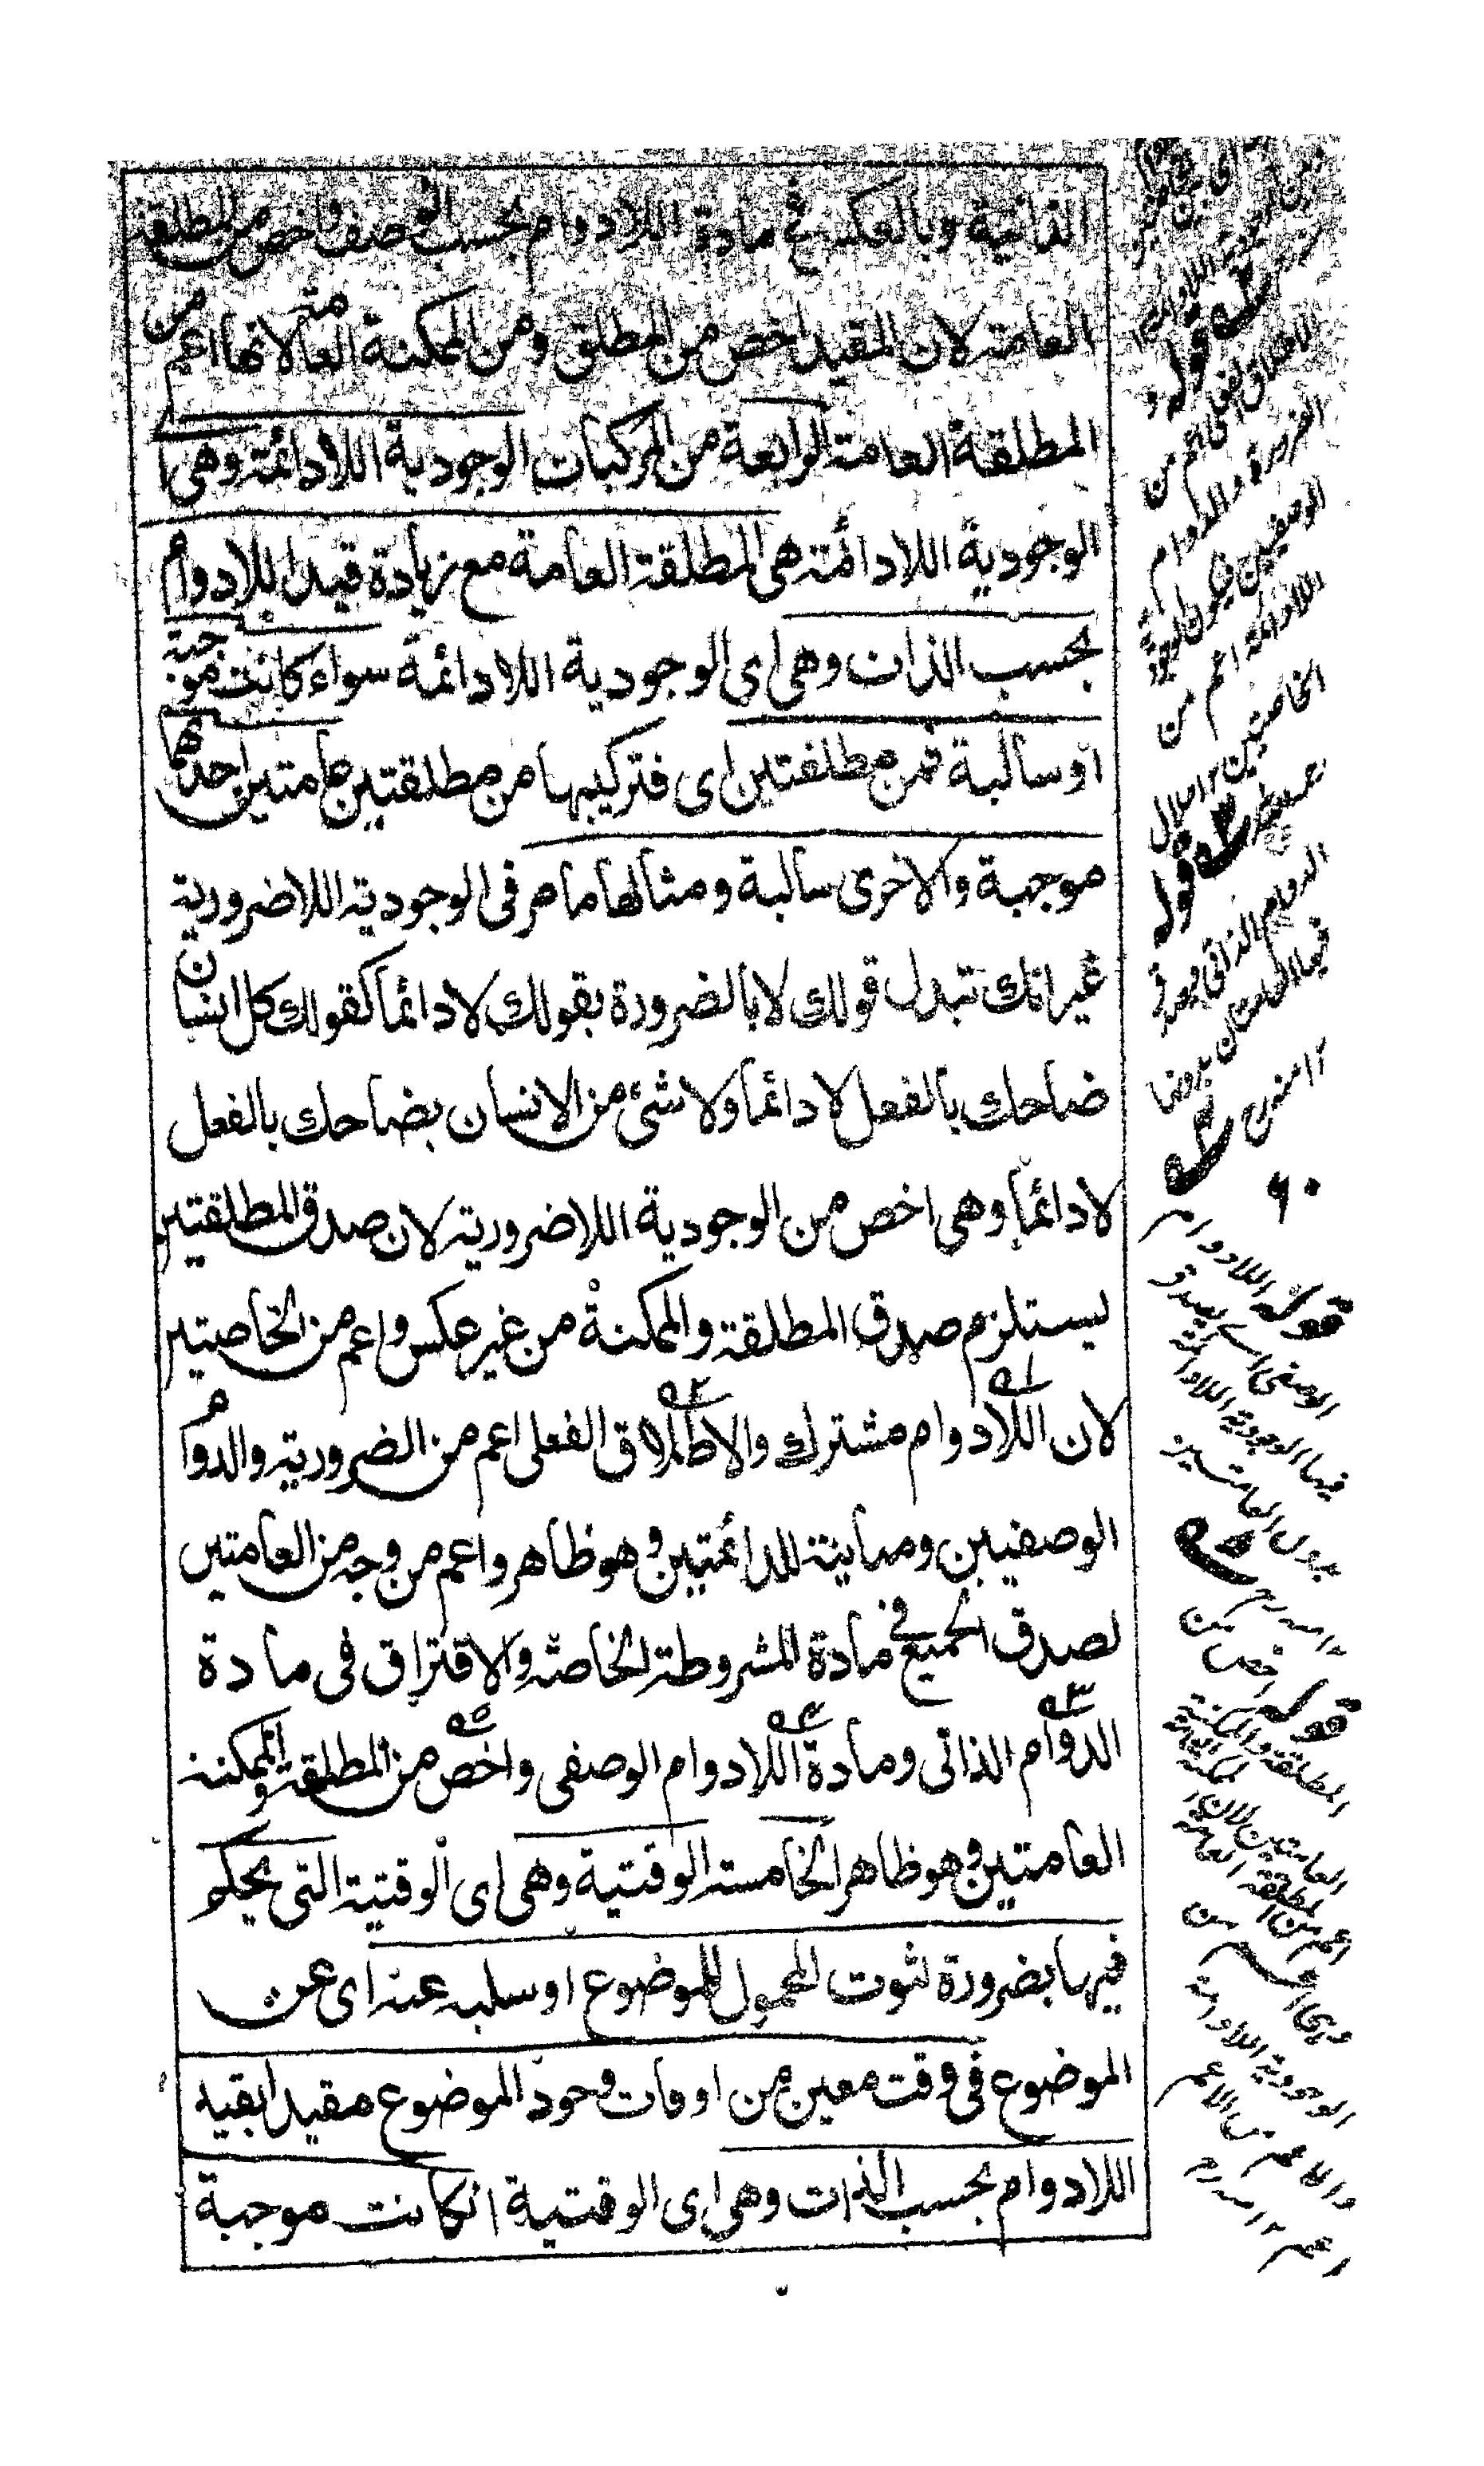 الذاتية وبالعكس في مادة اللادوام بحسب الوصف واخص من المطلقة
العامة لان المقيد اخص من المطلق ومن الممكنة العامة لانها اعم من
المطلقة العامة الرابعة من المركبات الوجودية اللادائمة وهي ا
الوجودية اللادائمة هي المطلقة العامة مع زيادة قيد اللادوام
بحسب الذات وهي اى الوجودية اللادائمة سواء كانت موجبة
او سالبة فمن مطلقتين اى فتركيبها من مطلقتين عامتين احدهما
موجبة والاخرى سالبة ومثالها ما مر فى الوجودية اللاضرورية
غير انك تبدل قولك لا بالضرورة بقولك لا دائما كقولك كل انسان
ضاحك بالفعل لا دائما ولا شئ من الانسان بضاحك بالفعل
لا دائما وهى اخص من الوجودية اللاضرورية لان صدق المطلقتين
يستلزم صدق المطلقة والممكنة من غير عكس واعم من الخاصيتين
لان اللادوام مشترك والاطلاق الفعلى اعم من الضرورية والدوام
الوصفيين ومباينة للدائمتين وهو ظاهر واعم من وجه من العامتين
لصدق الجميع فى مادة المشروطة الخاصة والافتراق فى مادة
الدوام الذاتى ومادة اللادوام الوصفى واخص من المطلقة والممكنة
العامتين وهو ظاهر الخامسة الوقتية وهى اى الوقتية التى يحكم
فيها بضرورة ثبوت المحمول للموضوع او سلبه عنه اى عن
الموضوع فى وقت معين من اوقات وجود الموضوع مقيدا بقيد
اللادوام بحسب الذات وهى اى الوقتية انكانت موجبة
قوله
الاطلاق الفعلى اعم من
الضرورة والدوام
الوصفيين
اللادائمة اعم من
الخاصتين
قوله
الدوام الذاتى
٦٠
قوله اللادوام
الوصفى
فيها الوجودية اللادائمة
بدون العامتين
قوله اخص من
المطلقة والممكنة
العامتين لان
المطلقة العامة
اعم من
الوجودية اللادائمة
والاعم من الاعم
اعم